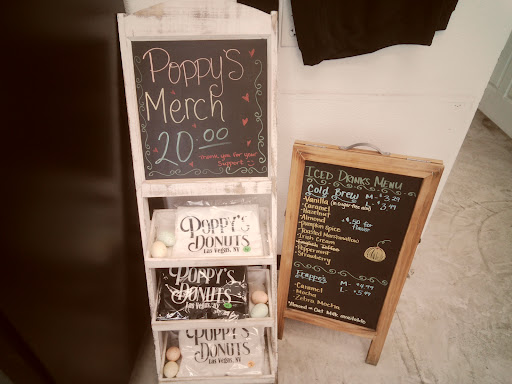 Poppy's
Merch
20.00
thank you for your
support
POPPY'S
DONUTS
Las Vegas, NV
POPPY'S
DONUTS
Las Vegas, NV
POPPY'S
DONUTS
Las Vegas, NV
ICED DRINKS MENU
Cold Brew M - $3.29
L - $3.99
-Vanilla (or sugar free also)
-Caramel
-Hazelnut
-Almond $.50 for
-Pumpkin Spice flavor
-Toasted Marshmallow
-Irish Cream
-English Toffee
-Peppermint
-Strawberry
Frappe's M - $4.99
L - $5.99
-Caramel
-Mocha
-Zebra Mocha
*Almond + Oat Milk available